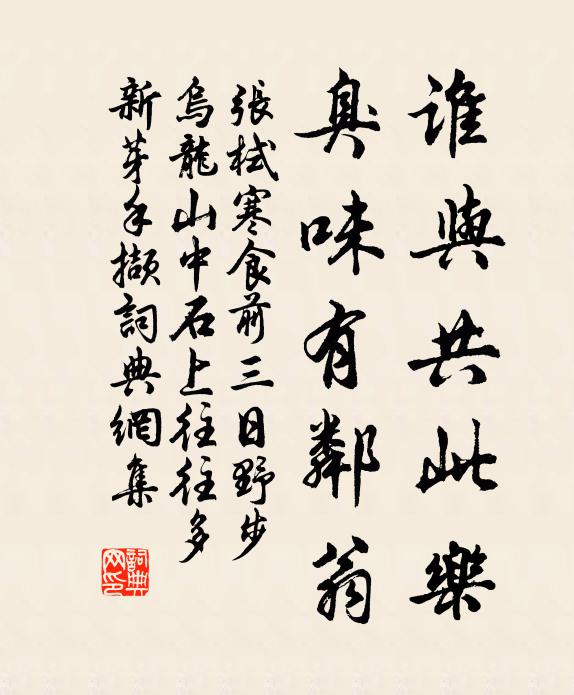 誰與共此樂
臭味有鄰翁
張栻寒食前三日野步
烏龍山中石上往往多
新芽手擷詞典網集
詞典網印